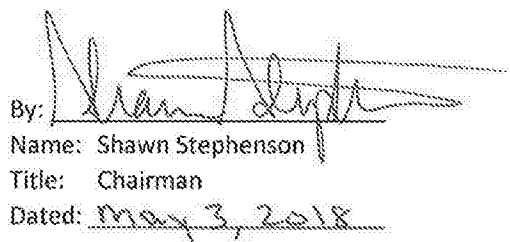 By: Shawn Stephenson
Name: Shawn Stephenson
Title: Chairman
Dated: May 3, 2018